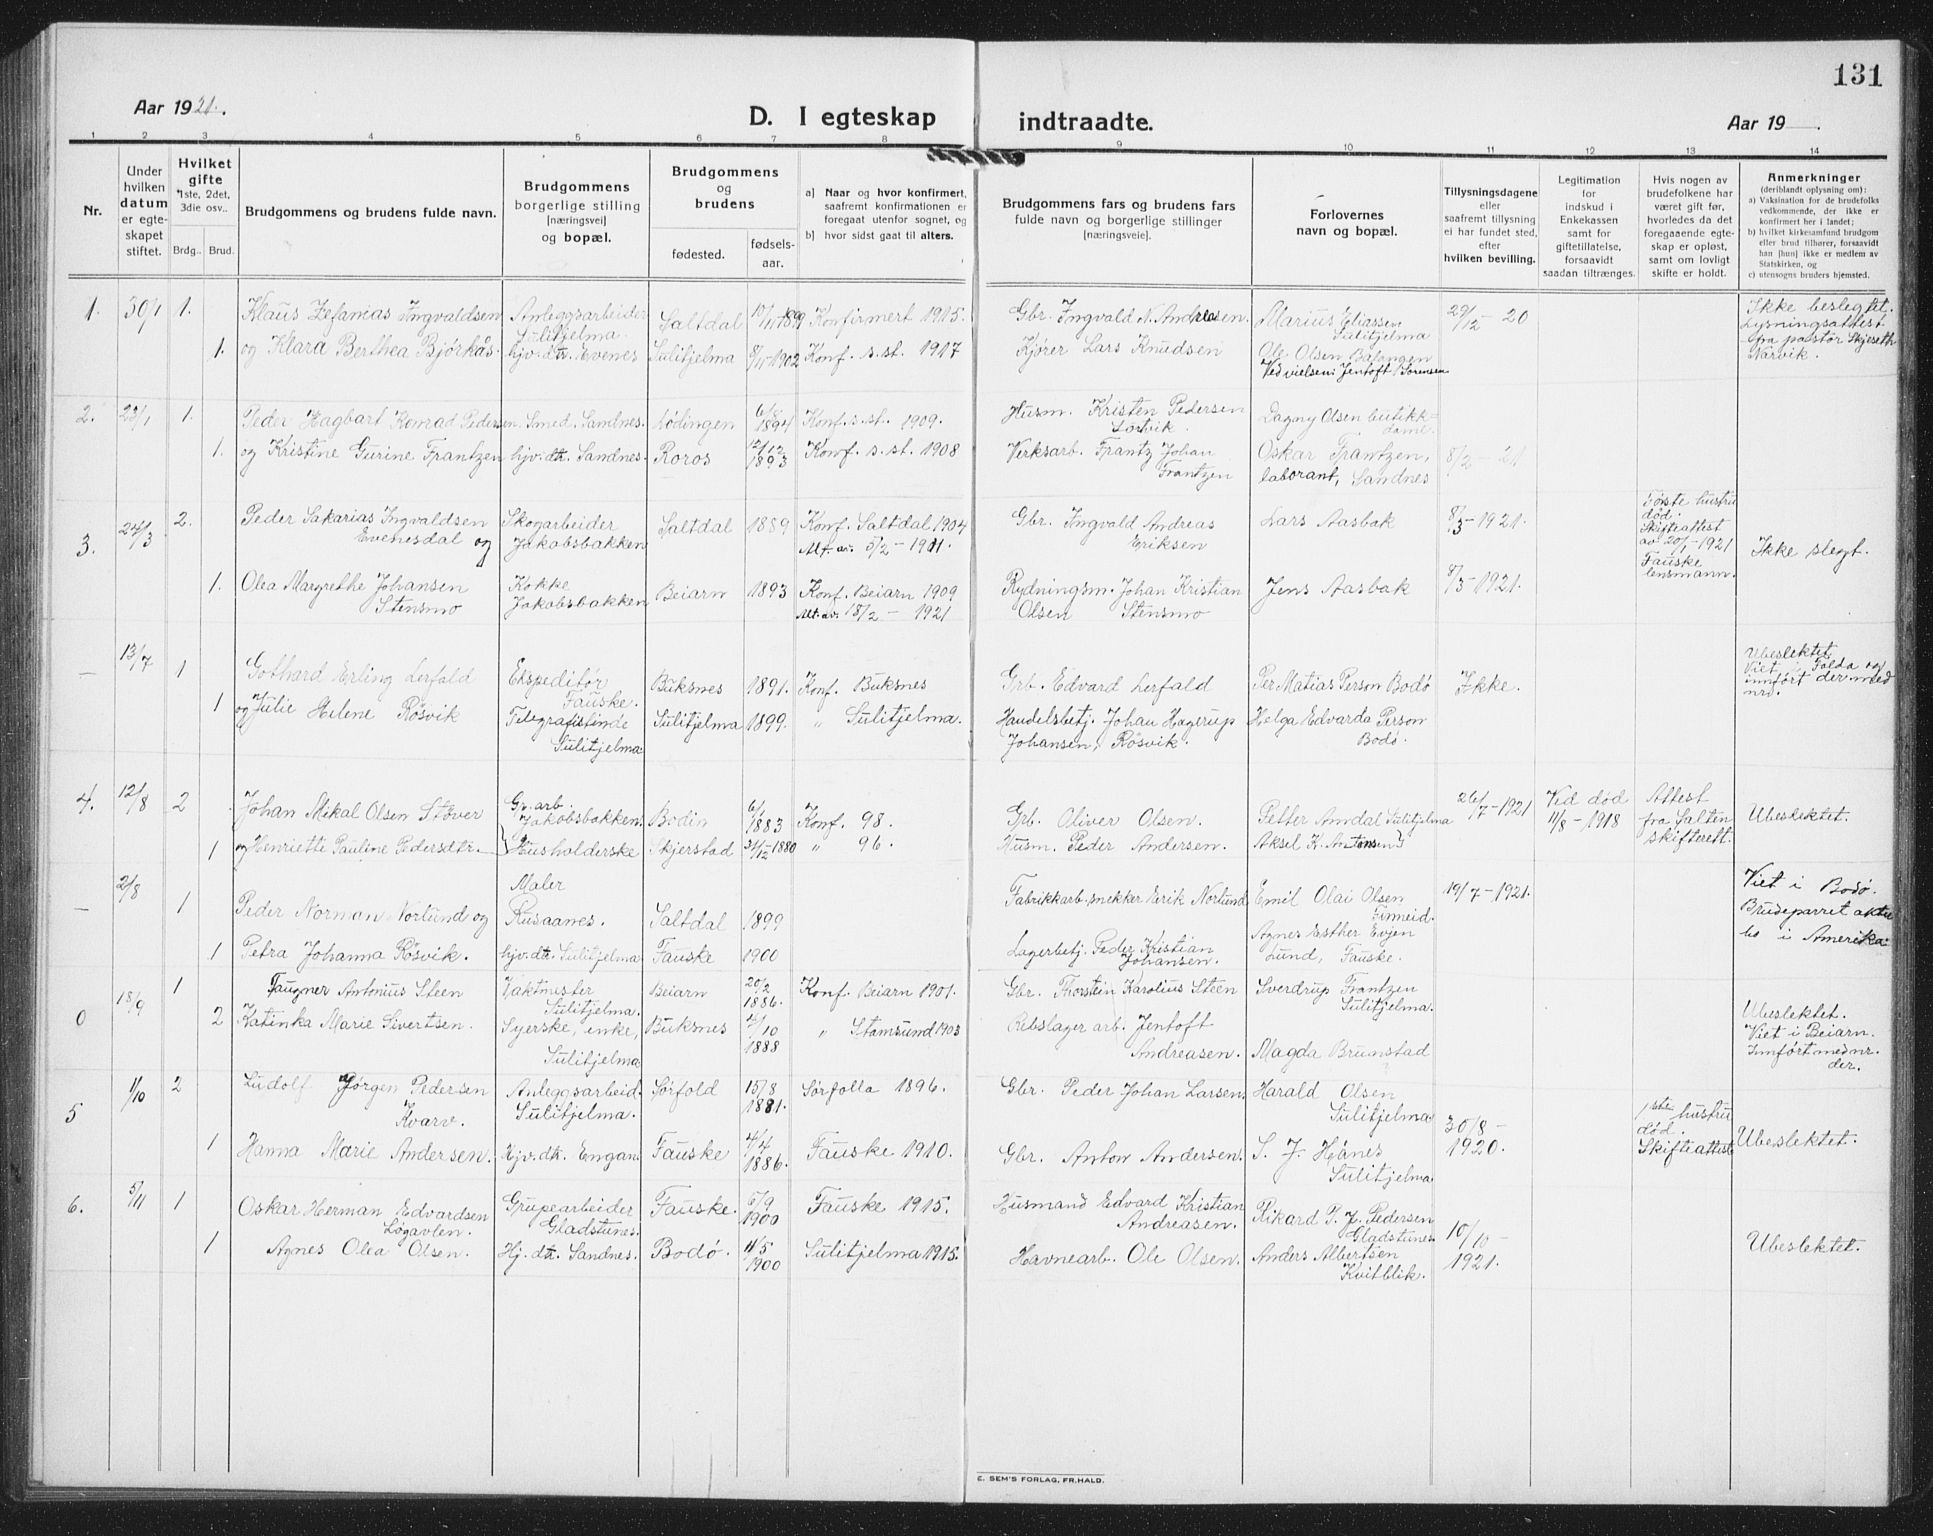 131
Aar 1921.
D. I egteskap indtraadte.
Aar 19 .
1 2 3 4 5 6 7 8 9 10 11 12 13 14
Nr.
Under
hvilken
datum
er egte-
skapet
stiftet.
Hvilket
gifte
*1ste, 2det,
3die osv..
Brdg.. Brud.
Brudgommens og brudens fulde navn.
Brudgommens
borgerlige stilling
[næringsvei]
og bopæl.
Brudgommens
og
brudens
fødested.
fødsels-
aar.
a) Naar og hvor konfirmert,
saafremt konfirmationen er
foregaat utenfor sognet, og
b) hvor sidst gaat til alters.
Brudgommens fars og brudens fars
fulde navn og borgerlige stillinger
[næringsveie].
Forlovernes
navn og bopæl.
Tillysningsdagene
eller
saafremt tillysning
ei har fundet sted,
efter
hvilken bevilling.
Legitimation
for
indskud i
Enkekassen
samt for
giftetillatelse,
forsaavidt
saadan tiltrænges.
Hvis nogen av
brudefolkene har
været gift før,
hvorledes da det
foregaaende egte-
skap er opløst,
samt om lovligt
skifte er holdt.
Anmerkninger
(deriblandt oplysning om):
a) Vaksination for de brudefolks
vedkommende, der ikke er
konfirmert her i landet;
b) hvilket kirkesamfund brudgom
eller brud tilhører, forsaavidt
han [hun] ikke er medlem av
Statskirken, og
c) utensogns bruders hjemsted.
1. 30/1 1. Klaus Zefanias Ingvaldsen Anleggsarbeider Sulitjelma. Saltdal 10/11 1894 Konfirmert 1915. Gbr. Ingvald N. Andreasen. Marius Eliassen Sulitjelma 29/12 - 20 Ikke beslegtet.
Lysningsattest
fra pastor Skjeseth
Narvik.
1. og Klara Berthea Bjørkås. hjv. dtr. Evenes Sulitjelma 8/11 1902 Konf. s. st. 1917 Kjører Lars Knudsen Ole Olsen Båfangen
Ved vielsen: Jentoft Sørensen
2. 23/1 1. Peder Hagbart Konrad Pedersen. Smed. Sandnes. Lødingen 6/8 1894 Konf. s. st. 1909. Husm. Kristen Pedersen Lørvik. Dagny Olsen butikk-dame.
1. og Kristine Gurine Frantzen hjv. dtr. Sandnes. Røros 12/12 1893 Konf. s. st. 1908 Verksarb. Frantz Johan Frantzen Oskar Frantzen, laborant, Sandnes 8/2 - 21
3. 24/3 2. Peder Sakarias Ingvaldsen Evenesdal og Skogarbeider Jakobsbakken Saltdal 1889 Konf. Saltdal 1904 Alt. av. 5/2 - 1911. Gbr. Ingvald Andreas Eriksen Lars Aasbak 8/3 - 1921. Første hustru
død.
Skifteattest
av 20/1 - 1921
Fauske
lensmann. Ikke slegt.
1. Olea Margrethe Johansen Stensmo Kokke Jakobsbakken Beiarn 1893 Konf. Beiarn 1909 Alt. av. 18/2 - 1921 Rydningsm. Johan Kristian Olsen Stensmo Jens Aasbak 8/3 - 1921.
— 13/7 1 Gothard Erling Lerfald Ekspeditør Fauske. Buksnes 1891. Konf. Buksnes Grb. Edvard Lerfald Per Matias Person Bodø Ikke. Ubeslektet.
Viet i Folda og
innført der med
nr.
1 og Julie Helene Røsvik Telegrafistinde Sulitjelma Sulitjelma 1899. " Sulitjelma. Handelsbetj. Johan Hagerup Johansen, Røsvik. Helga Edvarda Person Bodø.
4. 12/8 2 Johan Mikal Olsen Støver Gr. arb. Jakobsbakken. Bodin 6/1 1883 Konf. 98. Grb. Oliver Olsen. Petter Amdal Sulitjelma 26/7 - 1921 Ved død 11/8 - 1918 Attest
fra Salten
skifterett. Ubeslektet.
1 og Henriette Pauline Pedersdtr. Husholderske Skjerstad 31/12 1880 " 96. Husm. Peder Andersen. Aksel K. Antonsen
— 2/8 1 Peder Norman Norlund og Maler Rusaanes. Saltdal 1899 Fabrikkarb. snekker Erik Norlund Emil Olai Olsen Finneid. 19/7 - 1921. Viet i Bodø.
Brudeparret akter
bo i Amerika.
1 Petra Johanna Røsvik. hjv. dtr. Sulitjelma Fauske 1900 Lagerbetj. Peder Kristian Johansen. Agnes Esther Evjen Lund, Fauske.
0 18/9 1 Faugner Antonius Steen Vaktmester Sulitjelma. Beiarn 20/2 1886. Konf. Beiarn 1901. Gbr. Thorstein Karolius Steen Sverdrup Frantzen Sulitjelma. Ubeslektet.
Viet i Beiarn.
Innført med nr.
der.
2 Katinka Marie Sivertsen. Syerske, enke, Sulitjelma Buksnes 4/10 1888 " Stamsund 1903 Rebslager arb. Jentoft Andreasen. Magda Brunstad
5 1/10 2 Ludolf Jørgen Pedersen Kvarv. Anleggsarbeid. Sulitjelma. Sørfold 15/8 1881. Sørfolla 1896. Gbr. Peder Johan Larsen. Harald Olsen Sulitjelma 30/8 - 1920. 1ste hustru
død.
Skifteattest Ubeslektet.
1 Hanna Marie Andersen. Hjv. dtr. Engan. Fauske 4/4 1886. Fauske 1910. Gbr. Anton Andersen. S. J. Hånes Sulitjelma
6. 5/11 1 Oskar Herman Edvardsen Løgavlen. Grupearbeider Gladstunes. Fauske. 5/9 1900 Fauske 1915. Husmand Edvard Kristian Andreasen. Rikard P. J. Pedersen Gladstunes 10/10 - 1921. Ubeslektet.
1 Agnes Olea Olsen. Hj. dtr. Sandnes. Bodø. 11/5 1900 Sulitjelma 1915. Havnearb. Ole Olsen. Anders Albertsen Kvitblik.
E. SEM'S FORLAG, FR.HALD.